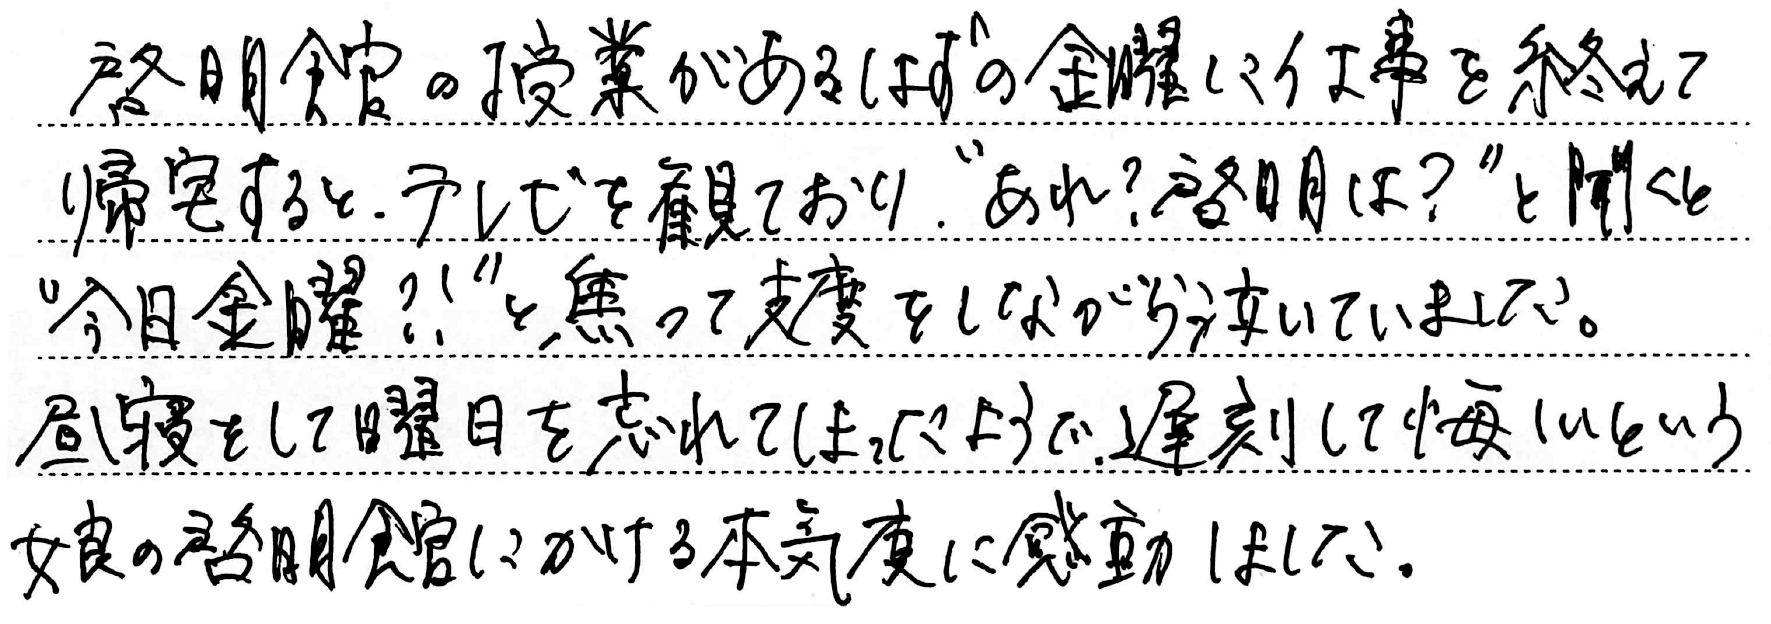 啓明館の授業があるはずの金曜に仕事を終えて
帰宅すると、テレビを観ており、"あれ?啓明は?"と聞くと
"今日金曜?!"と、焦って支度をしながら泣いていました。
昼寝をして曜日を忘れてしまったようで、遅刻して悔しいという
娘の啓明館にかける本気度に感動しました。